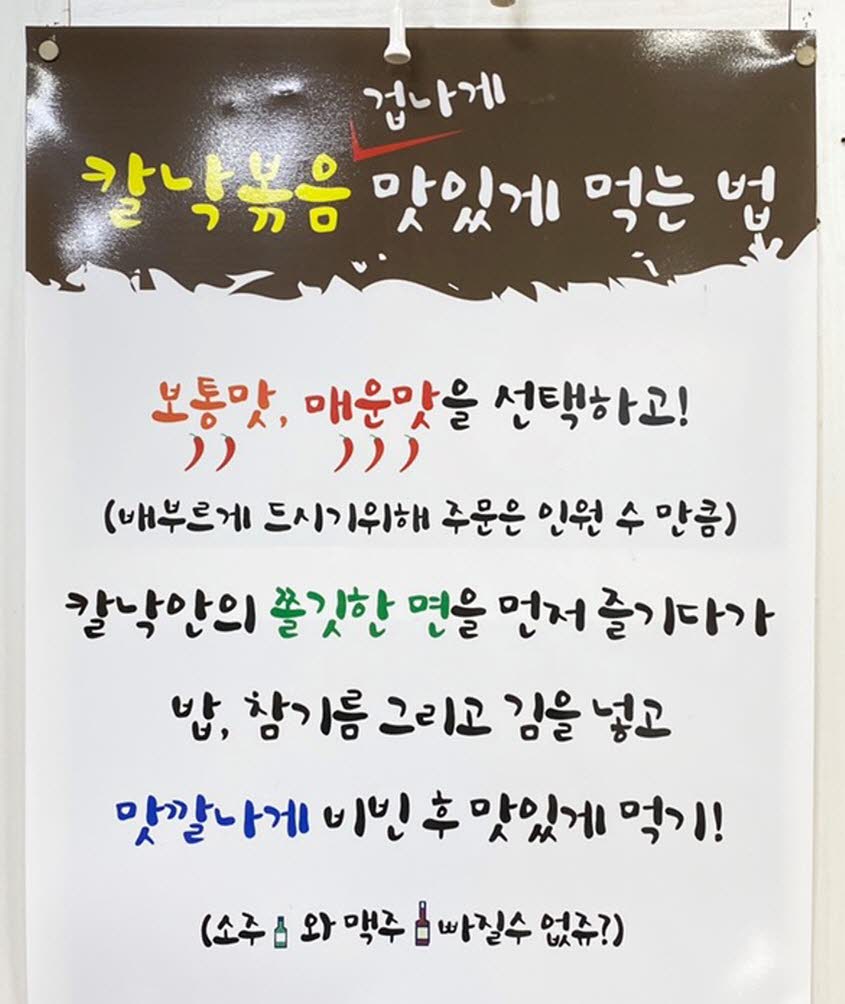 겁나게
칼낙볶음 맛있게 먹는 법
보통맛, 매운맛을 선택하고!
(배부르게 드시기위해 주문은 인원 수 만큼)
칼낙안의 쫄깃한 면을 먼저 즐기다가
밥, 참기름 그리고 김을 넣고
맛깔나게 비빈 후 맛있게 먹기!
(소주 와 맥주 빠질수 없쥬?)